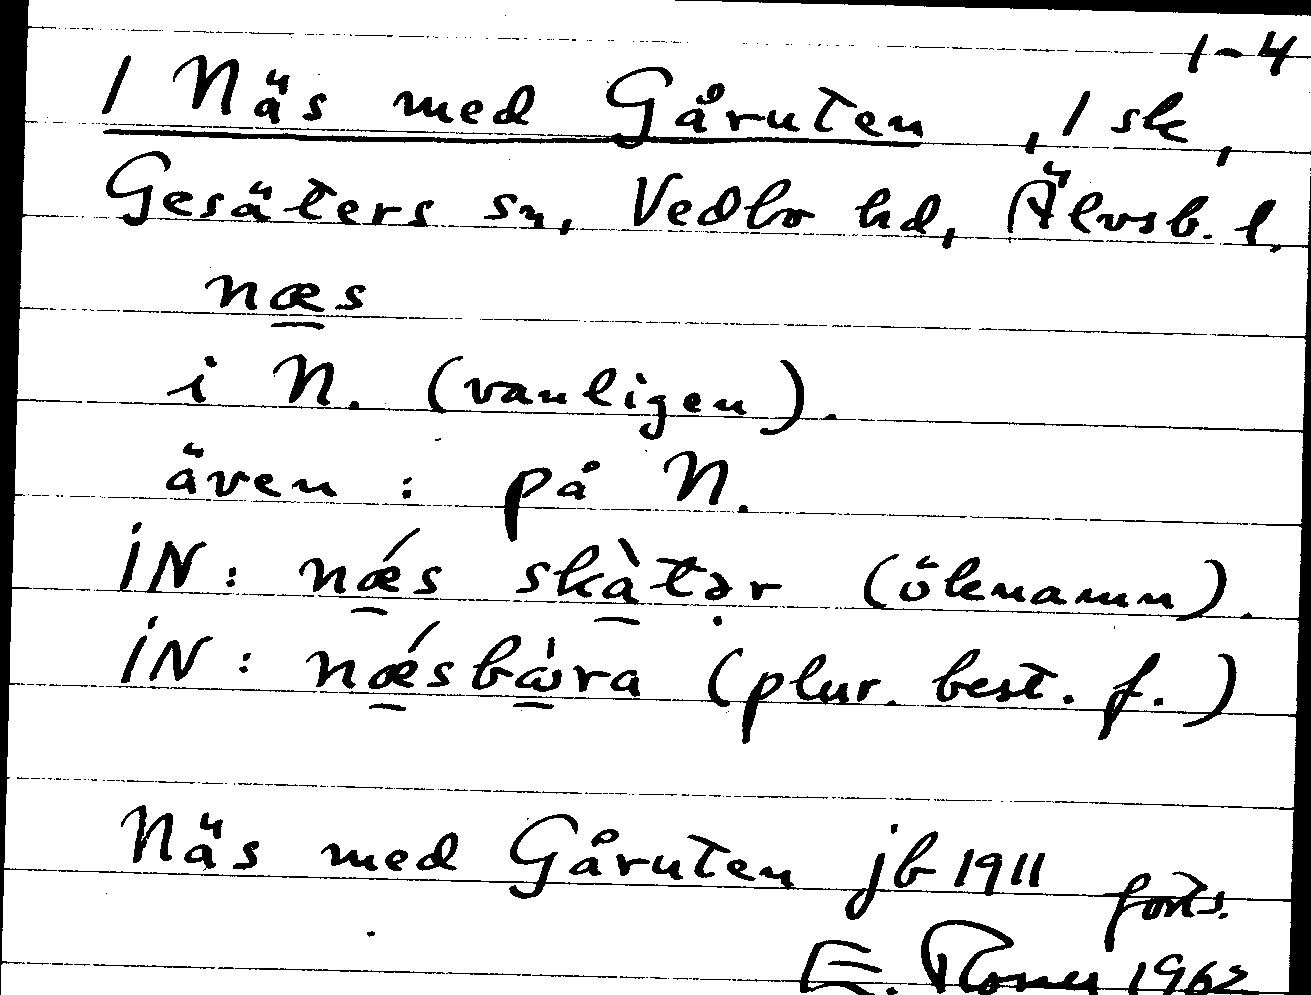 1-4
1 Näs med Gåruten, 1 sk,
Gesäters sn, Vedbo hd, Älvsb. l.
næs
i N. (vanligen).
även: på N.
iN: nǽs skàtər (öknamn).
iN: nǽsbὼra (plur. best. f.)
Näs med Gåruten jb 1911
forts.
E. 1962